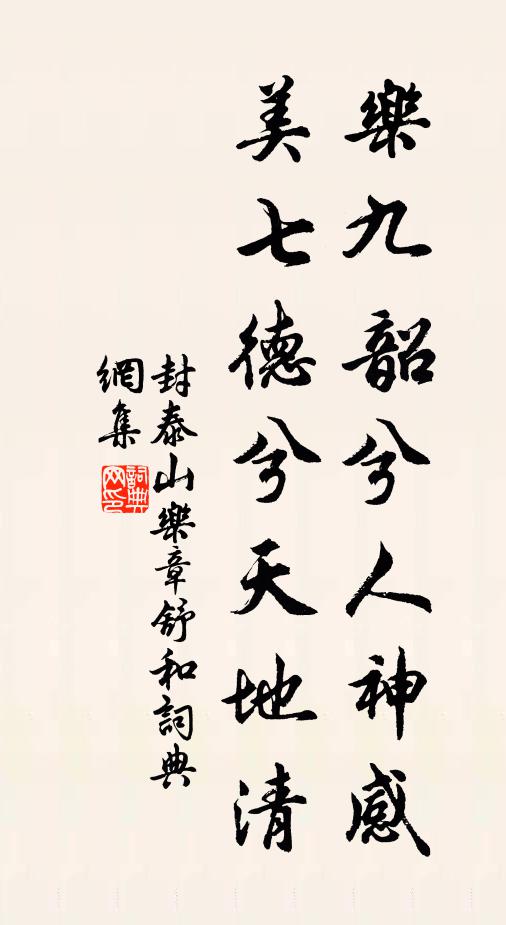 樂九韶兮人神感
美七德兮天地清
封泰山樂章舒和詞典
網集
詞典網印